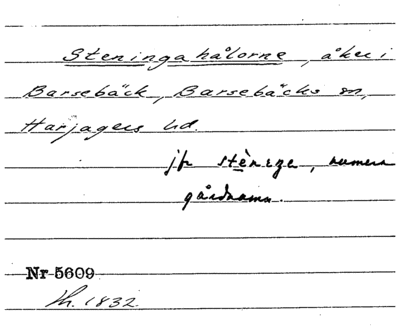 Steningahålorne, åker i
Barsebäck, Barsebäcks sn,
Harjagers hd.
jfr stènega, numera
gårdnamn.
Nr 5609
Th. 1832.